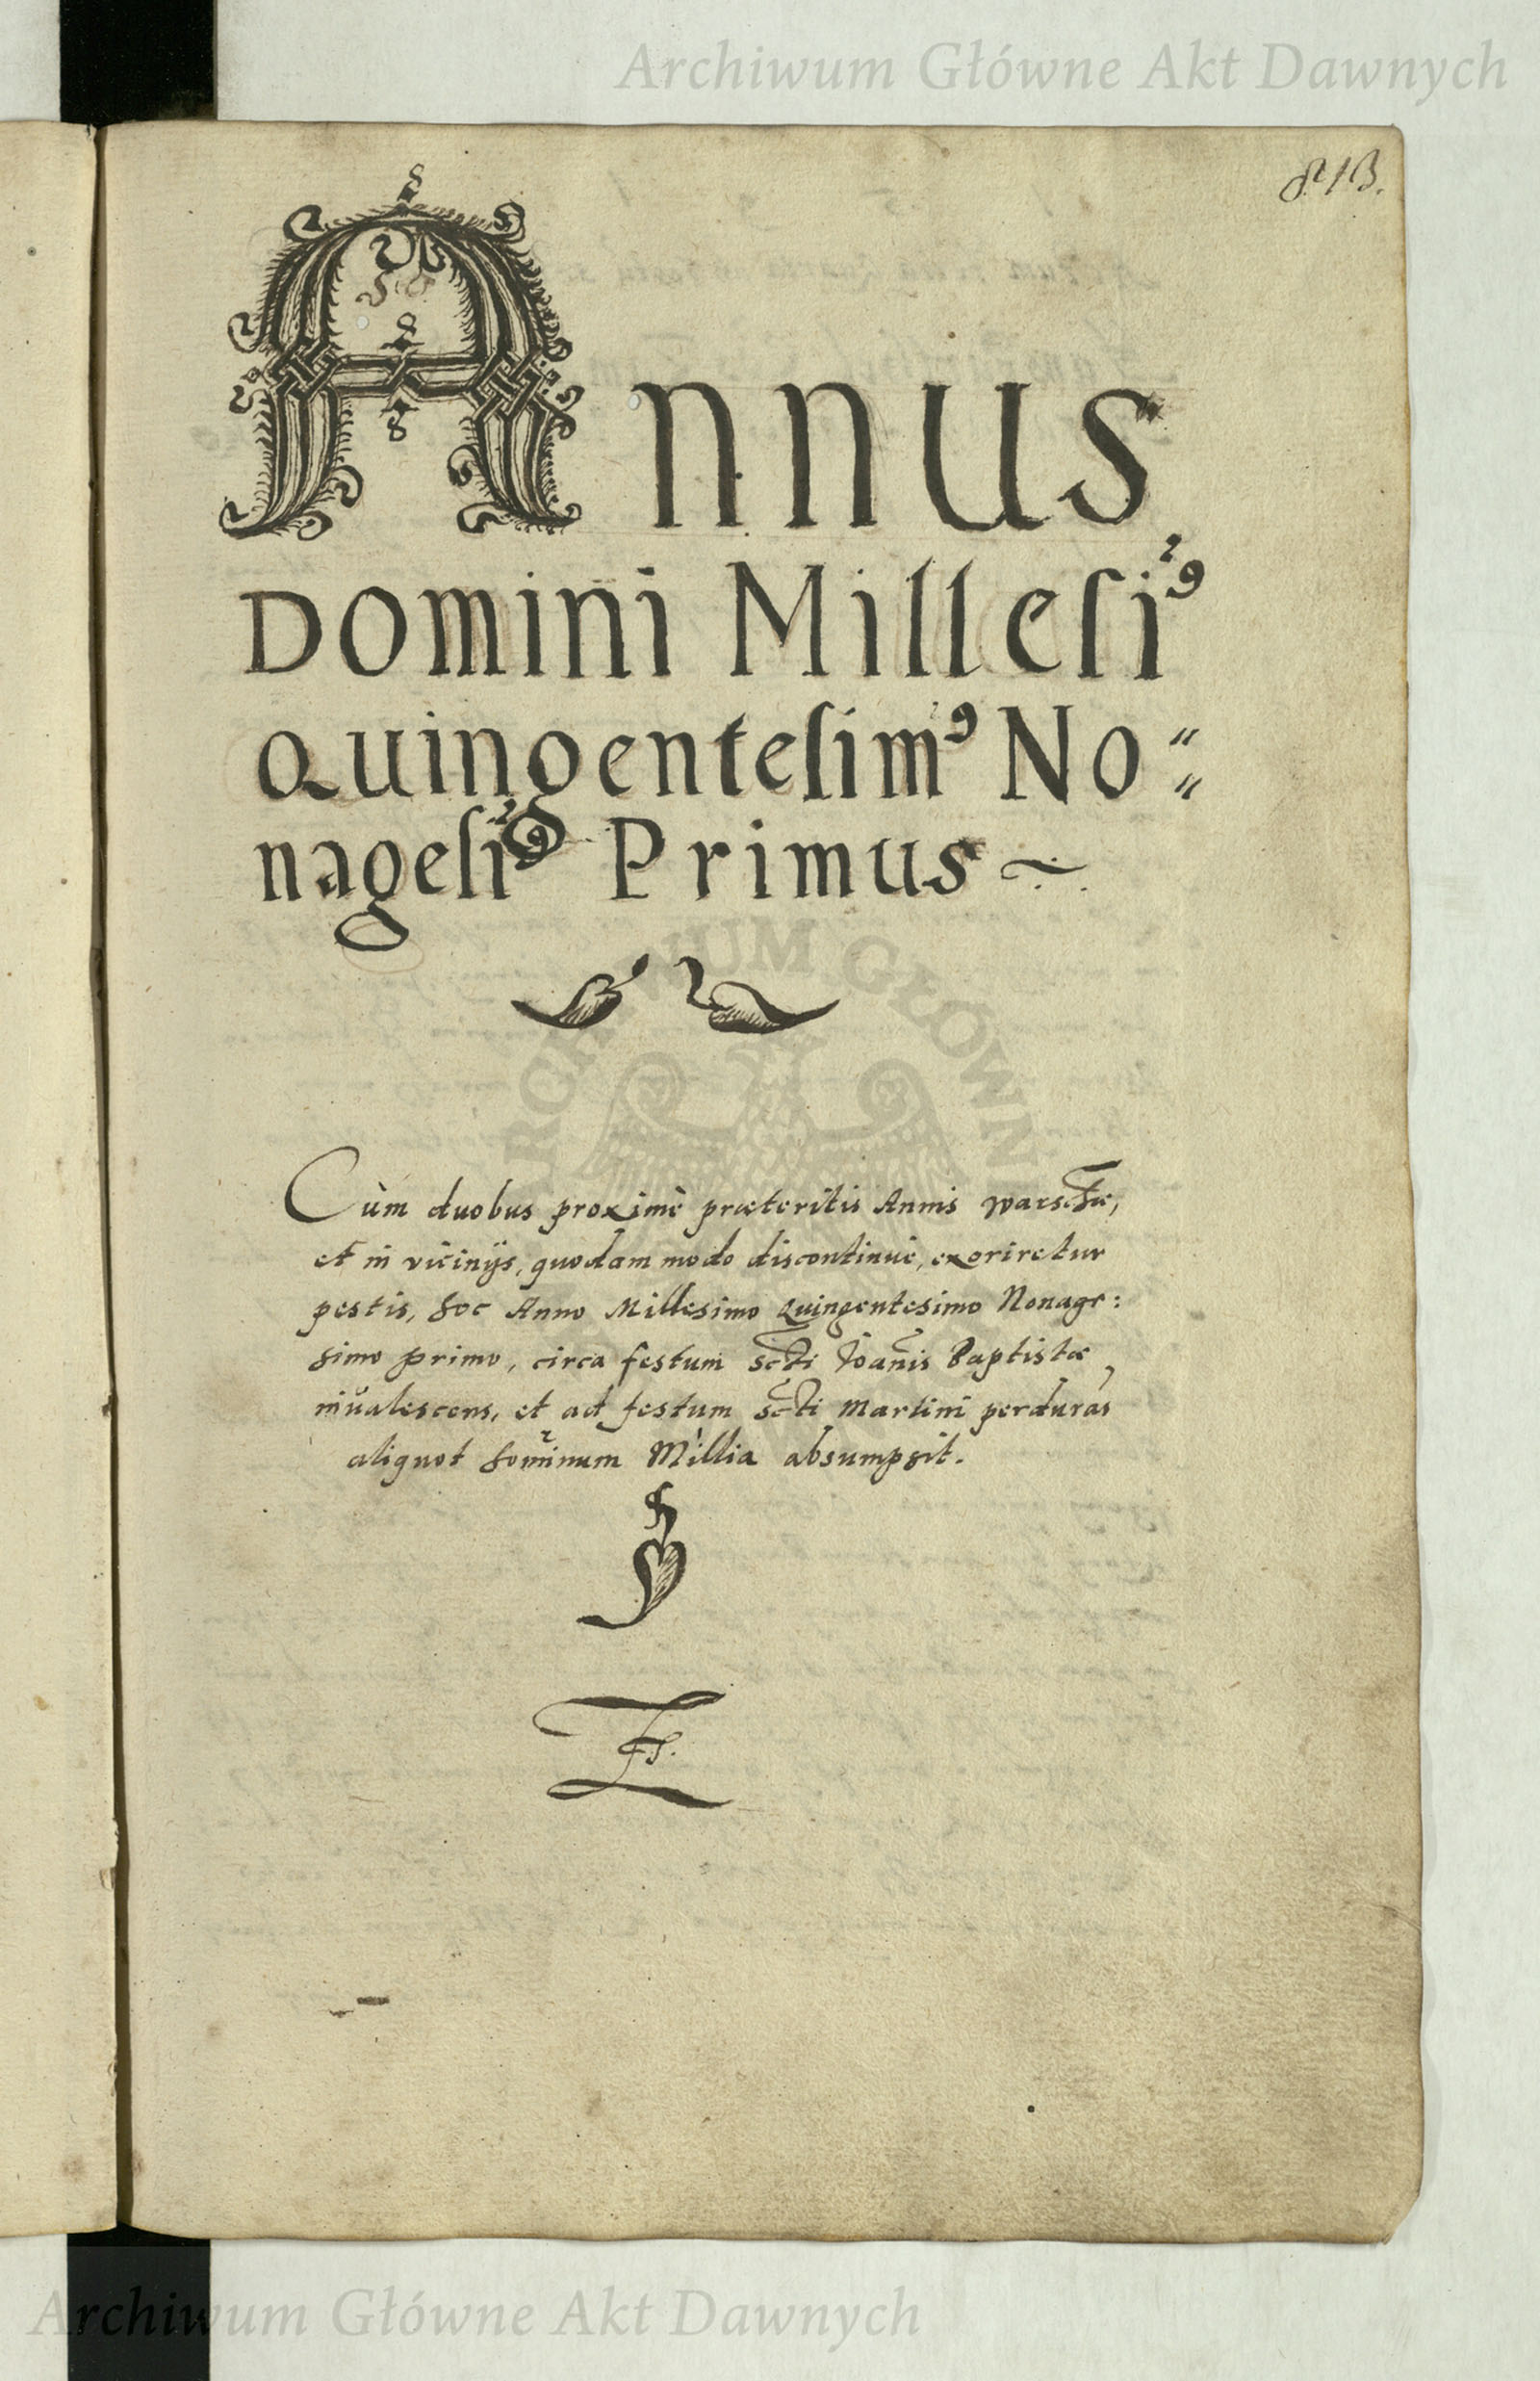 Archiwum Główne Akt Dawnych
813.
Annus
Domini Milleſi9
Quingenteſim9 No⸗
nageſi9 Primus
Cùm duobus proximè præteritis Annis Warschæ,
et in vicinijs, quodam modo discontinuè, exoriretur
pestis, hoc Anno Millesimo Quingentesimo Nonage:
simo primo, circa festum Scti Ioañis Baptistæ
inualescens, et ad festum Scti Martini perduras
aliquot hominum Millia absumpsit.
Archiwum Główne Akt Dawnych